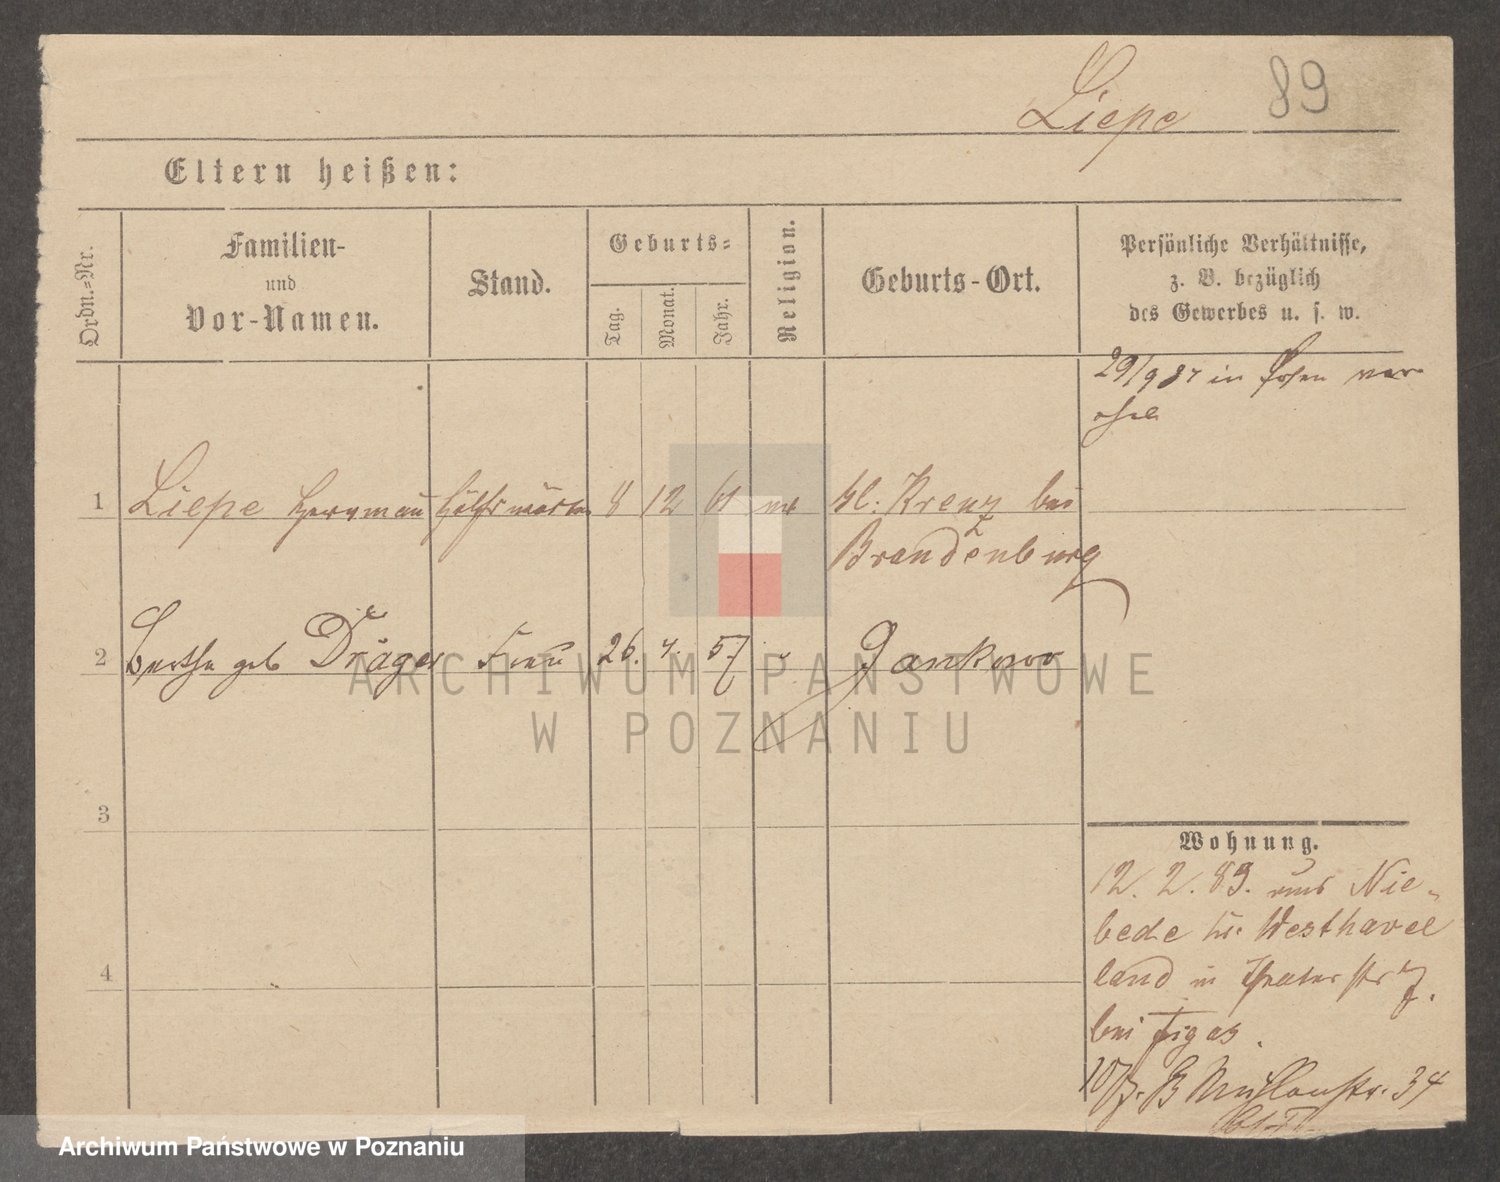 Liepe 89
Eltern heißen:
Ordn.=Nr.
Familien-
und
Vor-Namen.
Stand.
Geburts=
Tag.
Monat.
Jahr.
Religion.
Geburts-Ort.
Persönliche Verhältnisse,
z. B. bezüglich
des Gewerbes u. s. w.
29/9 87 in Posen ver
ehel
1 Liepe Herrmann 8 12 61 Kl: Kreuz bei
Brandenburg
2 Bertha geb Dräger Frau 26. 4. 57 Jankowo
ARCHIWUM PAŃSTWOWE
W POZNANIU
3
4
Wohnung.
12. 2. 89. aus Nie-
bede Kr. Westhavel
land in Theater str 7.
bei Figas.
Mühlenstr. 34
Archiwum Państwowe w Poznaniu